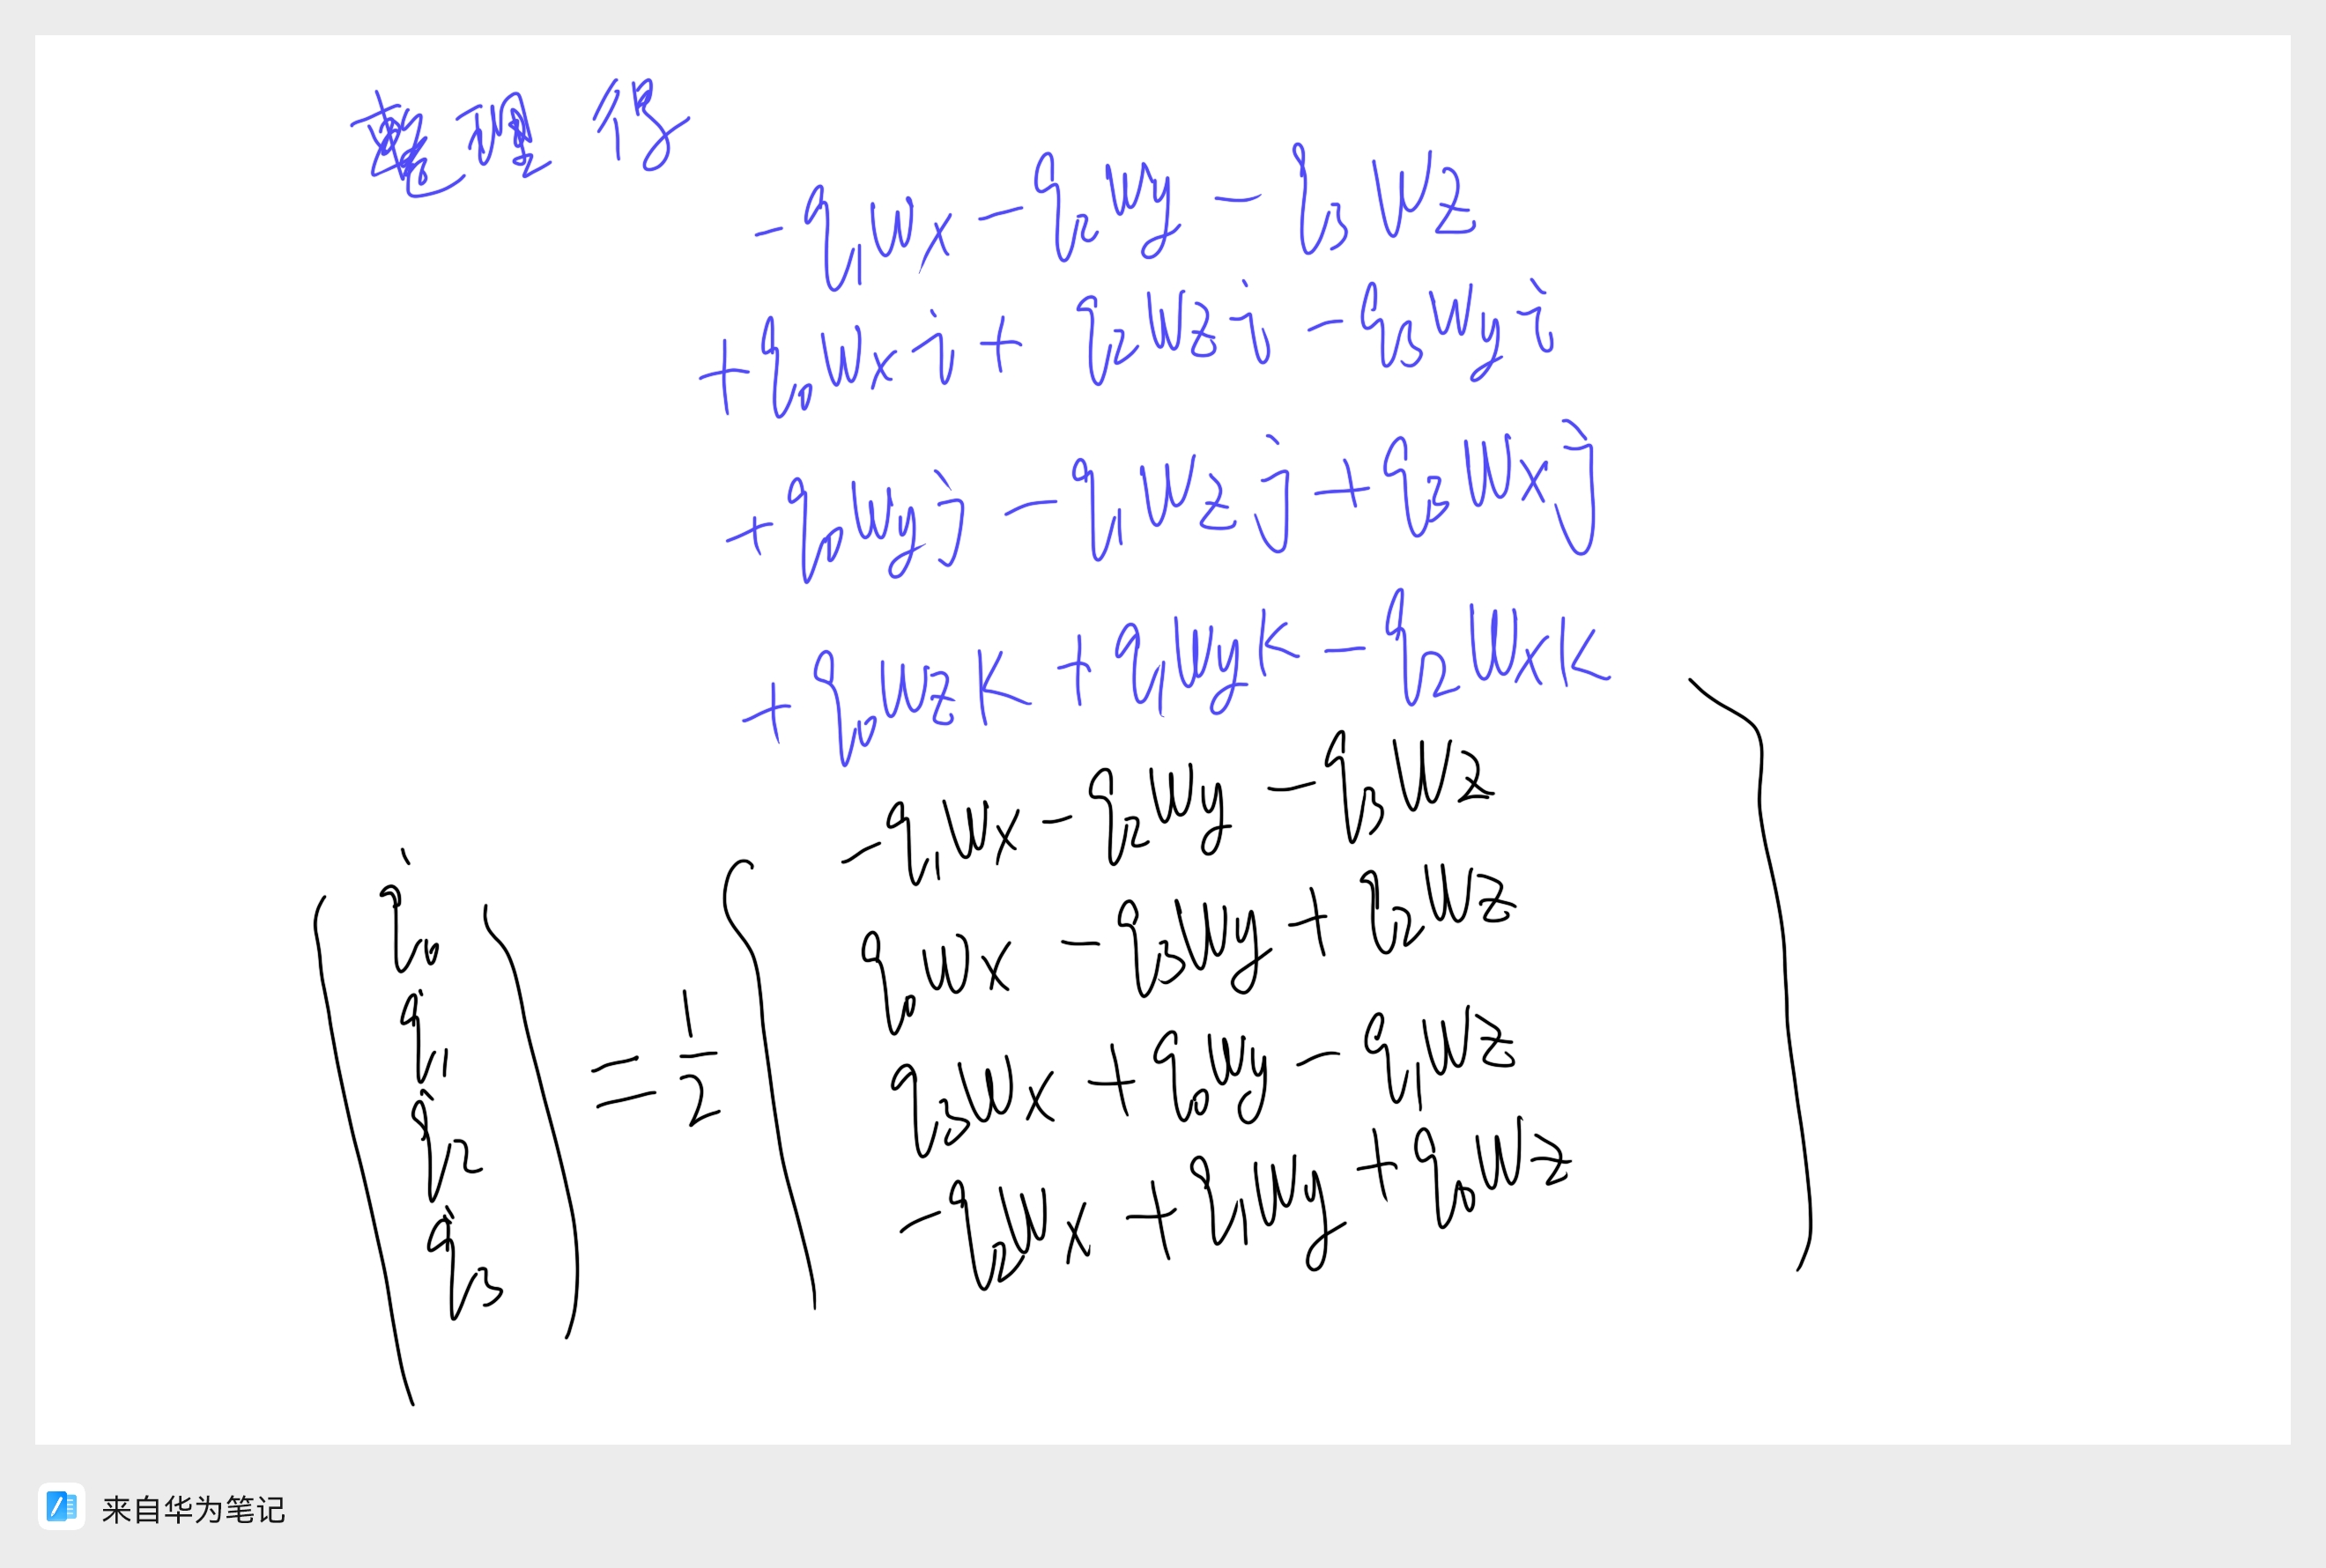 整理得
-q₁wx-q₂wy-q₃wz
+q₀wxi+q₂wzi-q₃wyi
+q₀wyj-q₁wzj+q₃wxj
+q₀wzk+q₁wyk-q₂wxk
-q₁wx-q₂wy-q₃wz
q̇₀
q₀wx-q₃wy+q₂wz
q̇₁
=1/2
q₃wx+q₀wy-q₁wz
q̇₂
-q₂wx+q₁wy+q₀wz
q̇₃
来自华为笔记